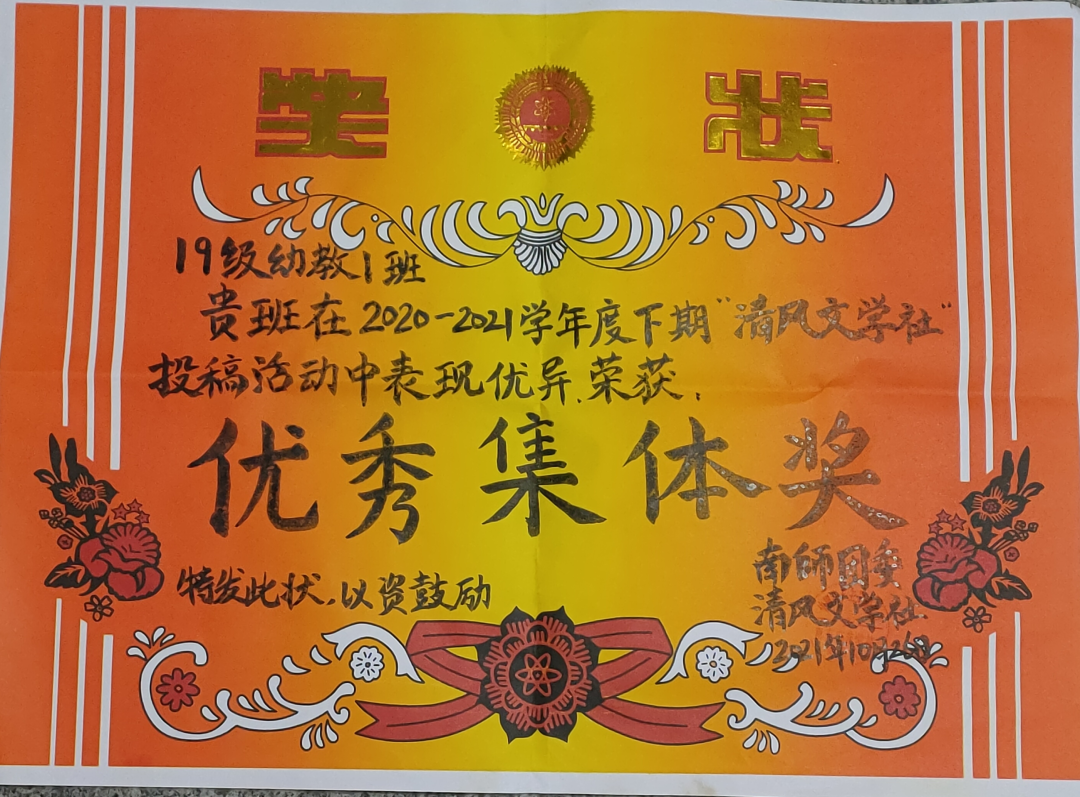 奖状
19级幼教1班
贵班在2020-2021学年度下期"清风文学社"
投稿活动中表现优异.荣获:
优秀集体奖
特发此状,以资鼓励
南师团委
清风文学社
2021年10月26日